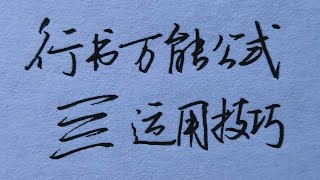 行书万能公式
三 运用技巧